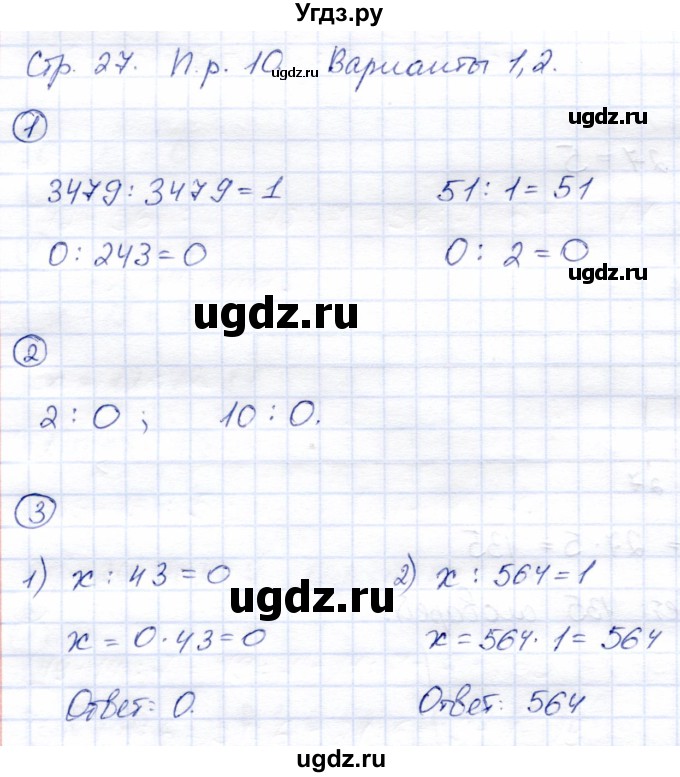 Угдз.ру
Стр. 27. П.р. 10 ugdz.ru Варианты 1,2.
1 ugdz.ru
3479 : 3479 = 1 51 : 1 = 51
0 : 243 = 0 0 : 2 = 0
ugdz.ru
ugdz.ru
2
2 : 0 ; 10 : 0.
3
1) x : 43 = 0 2) x : 564 = 1
ugdz.ru
x = 0 · 43 = 0 x = 564 · 1 = 564
Ответ: 0. Ответ: 564
ugdz.ru